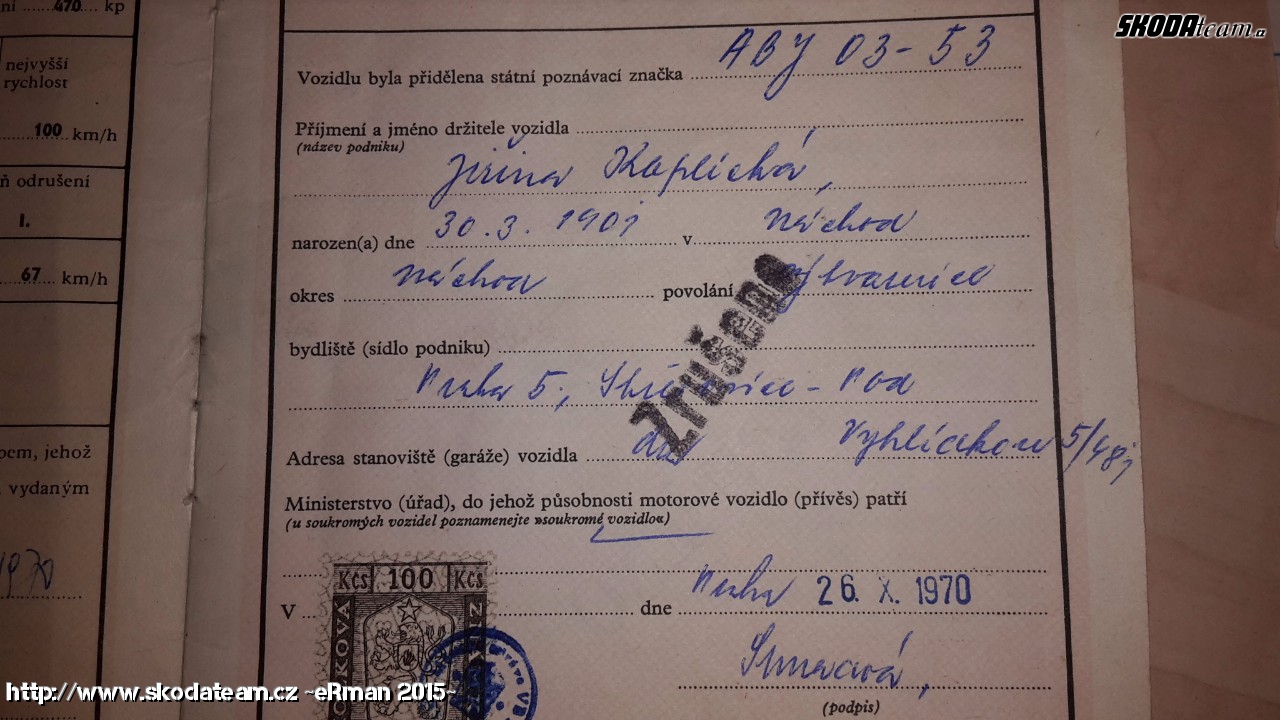 ní 470 kp
nejvyšší
rychlost
100 km/h
ň odrušení
I.
67 km/h
pem, jehož
vydaným
1970
SKODAteam.cz
Vozidlu byla přidělena státní poznávací značka ABJ 03-53
Příjmení a jméno držitele vozidla
(název podniku)
Jiřina Kaplická,
narozen(a) dne 30. 3. 1901 v Náchod
okres Náchod povolání výtvarnice
Zrušeno
bydliště (sídlo podniku)
Praha 5, Nad
Adresa stanoviště (garáže) vozidla 5/481
Ministerstvo (úřad), do jehož působnosti motorové vozidlo (přívěs) patří
(u soukromých vozidel poznamenejte »soukromé vozidlo«)
Kčs 100 Kčs
V dne Praha 26. X. 1970
(podpis)
http://www.skodateam.cz ~eRman 2015~